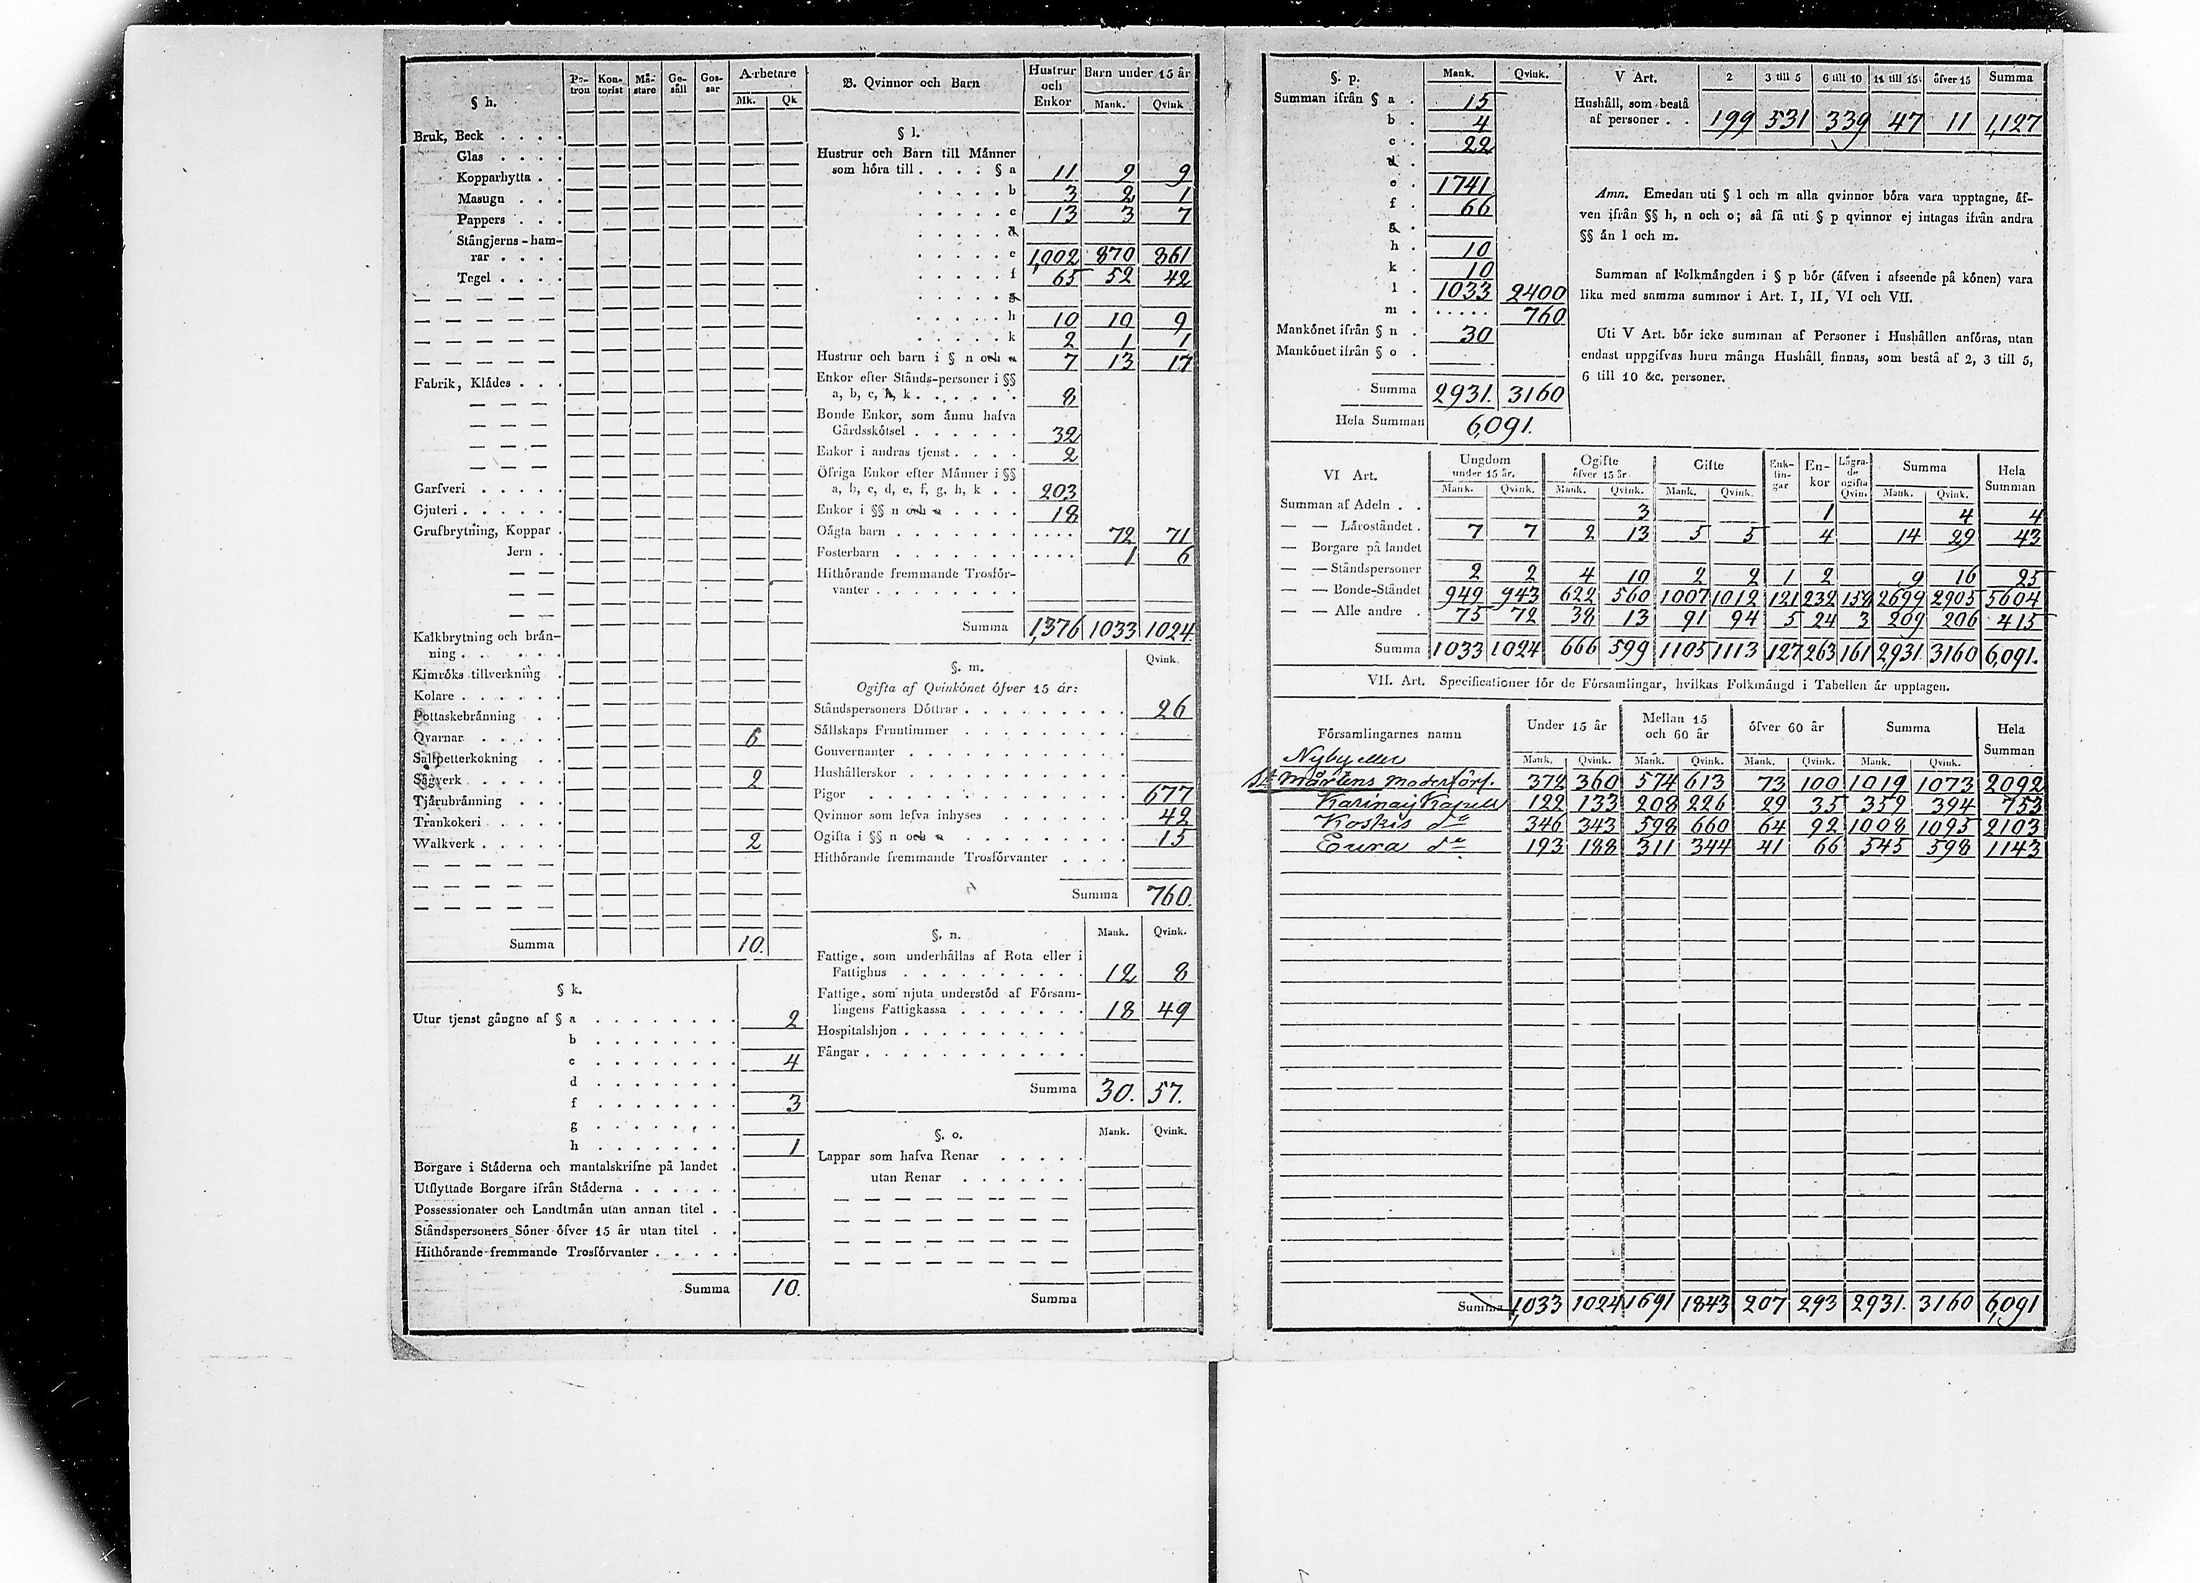 § h. Pa-tron Kon-torist Må-stare Ge-säll Gos-sar Arbetare Mk. Qk
Bruk, Beck . . . .
Glas . . . .
Kopparhytta . .
Masugn . . .
Pappers . . .
Stångjerns-ham-
rar . . . .
Tegel . . . .
Fabrik, Klådes . . .
Garfveri . . . . .
Gjuteri . . . . . .
Grufbrytning, Koppar .
Jern . .
Kalkbrytning och brån-
ning . . . . . .
Kimröks tillverkning .
Kolare . . . . . .
Pottaskebrånning . .
Qvarnar . . . . . 6
Saltpetterkokning . .
Sågverk . . . . . 2
Tjårubrånning . . .
Trankokeri . . . . .
Walkverk . . . . . 2
Summa 10.
§ k.
Utur tjenst gångne af § a . . . . . . . . 2
b . . . . . . . .
c . . . . . . . . 4
d . . . . . . . .
f . . . . . . . . 3
g . . . . . . . .
h . . . . . . . . 1
Borgare i Ståderna och mantalskrifne på landet .
Utflyttade Borgare ifrån Ståderna . . . . . .
Possessionater och Landtmån utan annan titel . .
Ståndspersoners Sóner ófver 15 år utan titel . .
Hithórande fremmande Trosfórvanter . . . . .
Summa 10.
B. Qvinnor och Barn Hustrur och Enkor Barn under 15 år Mank. Qvink
§ l.
Hustrur och Barn till Månner
som hóra till . . . . § a 11 9 9
. . . . . b 3 2 1
. . . . . c 13 3 7
. . . . . d
. . . . . e 1,002 870 861
. . . . . f 65 52 42
. . . . . g
. . . . . h 10 10 9
. . . . . k 2 1 1
Hustrur och barn i § n och o 7 13 17
Enkor efter Stånds-personer i §§
a, b, c, h, k . . . . . . 8
Bonde Enkor, som ånnu hafva
Gårdsskótsel . . . . . . 32
Enkor i andras tjenst . . . . 2
Öfriga Enkor efter Månner i §§
a, b, c, d, e, f, g, h, k . . 203
Enkor i §§ n och o . . . . . 18
Oågta barn . . . . . . . . . . . 72 71
Fosterbarn . . . . . . . . . . . 1 6
Hithórande fremmande Trosfór-
vanter . . . . . . . .
Summa 1,376 1033 1024
§. m. Qvink.
Ogifta af Qvinkónet ófver 15 år:
Ståndspersoners Dóttrar . . . . . . . . . 26
Sållskaps Fruntimmer . . . . . . . . .
Gouvernanter . . . . . . . . . . . .
Hushållerskor . . . . . . . . . . . .
Pigor . . . . . . . . . . . . . . 677
Qvinnor som lefva inhyses . . . . . . . 42
Ogifta i §§ n och o . . . . . . . . . . 15
Hithórande fremmande Trosfórvanter . . . .
Summa 760.
§. n. Mank. Qvink.
Fattige, som underhållas af Rota eller i
Fattighus . . . . . . . . . . 12 8
Fattige, som njuta understód af Fórsam-
lingens Fattigkassa . . . . . . . 18 49
Hospitalshjon . . . . . . . . . . .
Fångar . . . . . . . . . . . . .
Summa 30. 57.
§. o. Mank. Qvink.
Lappar som hafva Renar . . . . .
utan Renar . . . . . . .
Summa
§. p. Mank. Qvink.
Summan ifrån § a . 15
b . 4
c . 22
d .
e . 1741
f . 66
g .
h . 10
k . 10
l . 1033 2400
m . . . . . . 760
Mankónet ifrån § n . 30
Mankónet ifrån § o .
Summa 2931. 3160
Hela Summan 6,091.
V Art. 2 3 till 5 6 till 10 11 till 15 ófver 15 Summa
Hushåll, som bestå
af personer . . 199 531 339 47 11 1,127
Amn. Emedan uti § l och m alla qvinnor bóra vara upptagne, åf-
ven ifrån §§ h, n och o; så få uti § p qvinnor ej intagas ifrån andra
§§ ån l och m.
Summan af Folkmångden i § p bór (åfven i afseende på kónen) vara
lika med samma summor i Art. I, II, VI och VII.
Uti V Art. bór icke summan af Personer i Hushållen anfóras, utan
endast uppgifvas huru många Hushåll finnas, som bestå af 2, 3 till 5,
6 till 10 &c. personer.
VI Art. Ungdom under 15 år. Ogifte ófver 15 år Gifte Enk-lin-gar En-kor Lågra-de ogifta Qvin. Summa Hela Summan
Mank. Qvink. Mank. Qvink. Mank. Qvink. Mank. Qvink.
Summan af Adeln . . 3 1 4 4
— — Låroståndet . 7 7 2 13 5 5 4 14 29 43
— Borgare på landet
— — Ståndspersoner 2 2 4 10 2 2 1 2 9 16 25
— — Bonde-Ståndet 949 943 622 560 1007 1012 121 232 158 2699 2905 5604
— — Alle andre . 75 72 38 13 91 94 5 24 3 209 206 415
Summa 1033 1024 666 599 1105 1113 127 263 161 2931 3160 6,091.
VII. Art. Specificationer fór de Fórsamlingar, hvilkas Folkmångd i Tabellen år upptagen.
Fórsamlingarnes namn Under 15 år Mellan 15 och 60 år ófver 60 år Summa Hela Summan
Mank. Qvink. Mank. Qvink. Mank. Qvink. Mank. Qvink.
Nyby eller
St Mårtens Moderförs. 372 360 574 613 73 100 1019 1073 2092
Karinais Kapell 122 133 208 226 29 35 359 394 753
Koskis do 346 343 598 660 64 92 1008 1095 2103
Eura do 193 188 311 344 41 66 545 598 1143
Summa 1,033 1024 1691 1843 207 293 2931. 3160 6,091